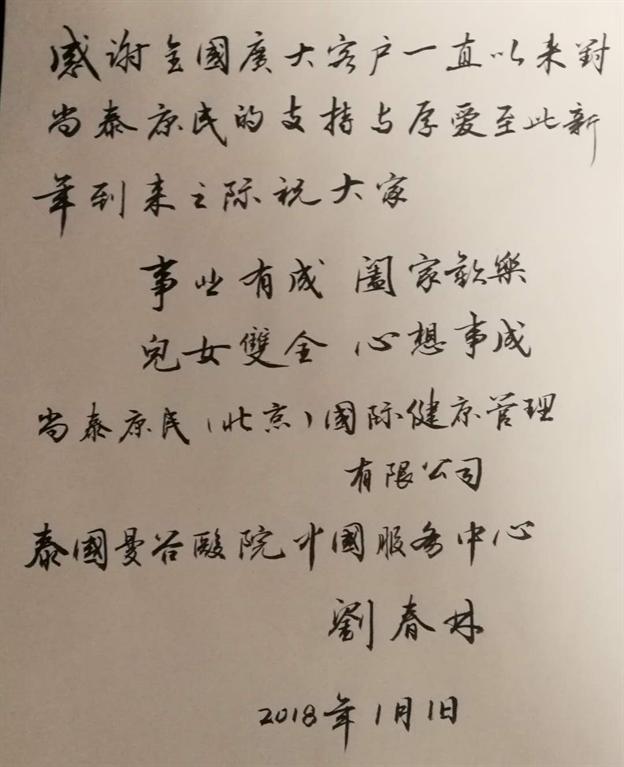 感谢全國廣大客户一直以来對
尚泰康民的支持与厚爱至此新
年到来之际祝大家
事业有成 阖家歡樂
兒女雙全 心想事成
尚泰康民(北京)國际健康管理
有限公司
泰國曼谷醫院中國服务中心
劉春林
2018年1月1日